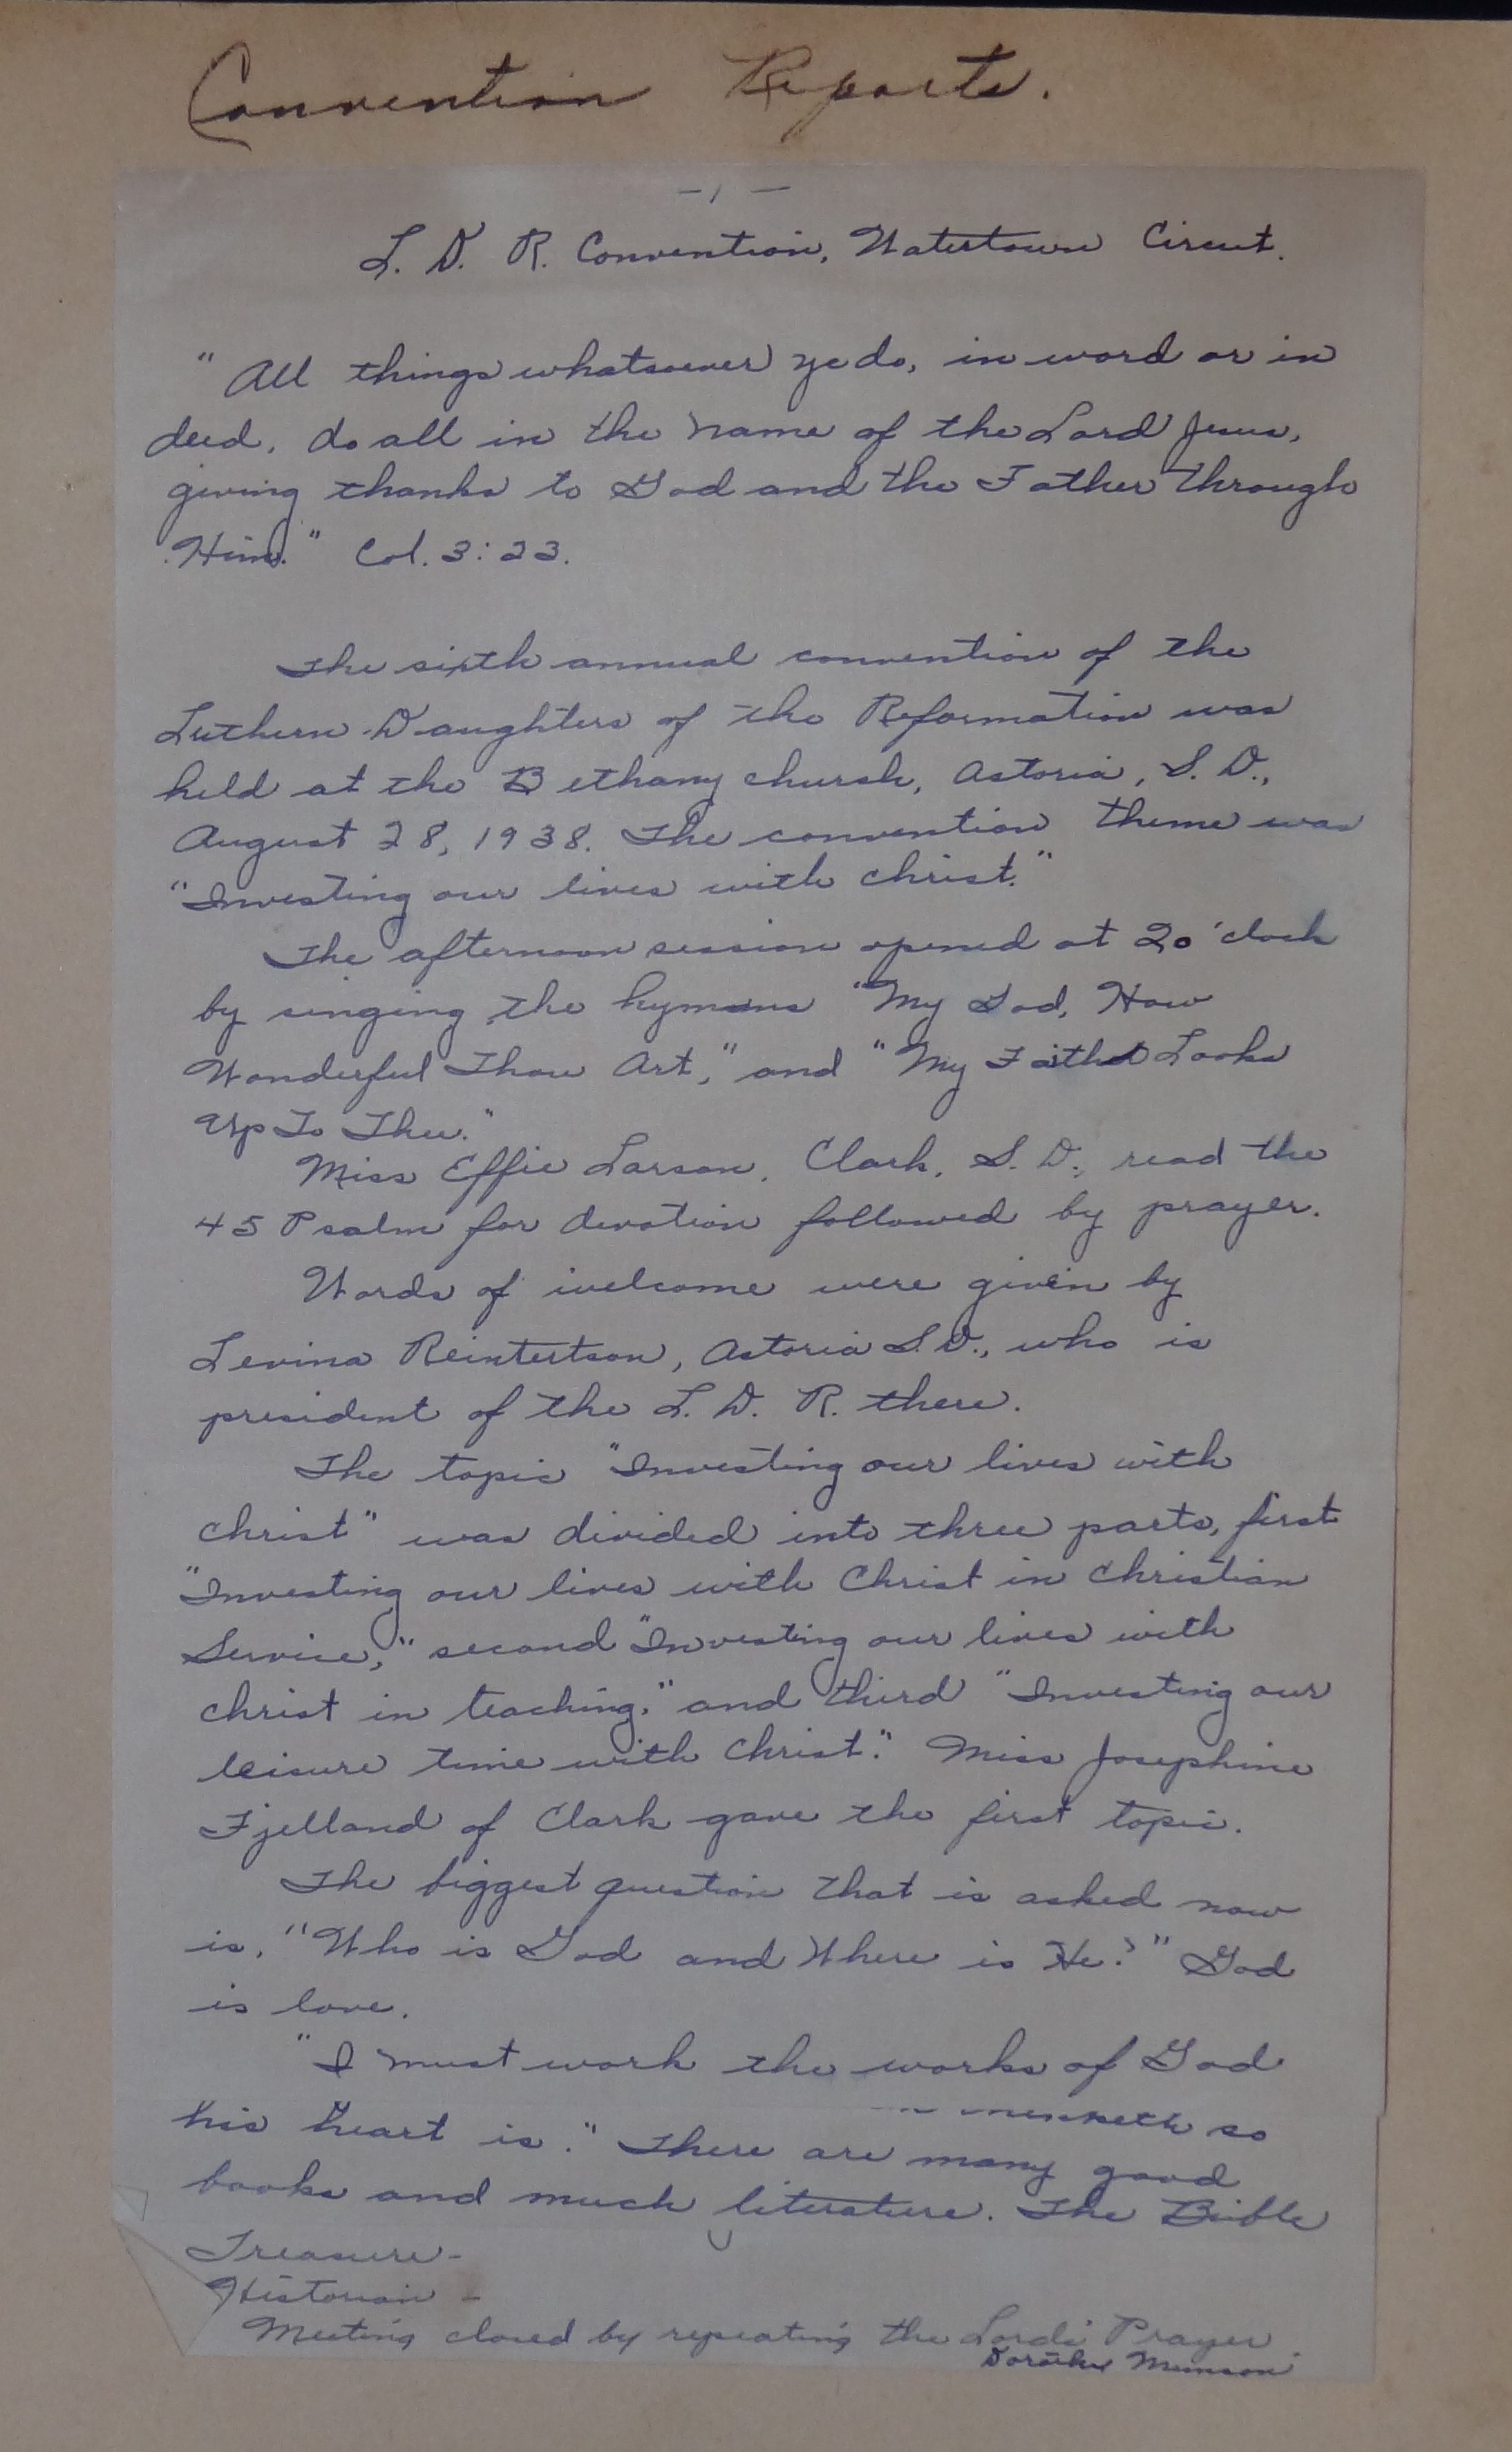 Convention Reports.
- 1 -
L. D. R. Convention, Watertown Circut.
" All things whatsoever ye do, in word or in
deed, do all in the name of the Lord Jesus,
giving thanks to God and the Father through
Him." Col. 3:23.
The sixth annual convention of the
Luthern Daughters of the Reformation was
held at the Bethany church, Astoria, S. D.,
August 28, 1938. The convention theme was
"Investing our lives with Christ."
The afternoon session opened at 2 o'clock
by singing the hymns "My God, How
Wonderful Thou Art," and "My Faith Looks
Up To Thee."
Miss Effie Larson, Clark, S. D., read the
45 Psalm for devotion followed by prayer.
Words of welcome were given by
Levina Reintertson, Astoria S.D., who is
president of the L. D. R. there.
The topic "Investing our lives with
Christ" was divided into three parts, first
"Investing our lives with Christ in Christian
Service," second "Investing our lives with
Christ in teaching," and third "Investing our
leisure time with Christ." Miss Josephine
Fjelland of Clark gave the first topic.
The biggest question that is asked now
is, "Who is God and Where is He?" God
is love.
"I must work the works of God
so
his heart is." There are many good
books and much literature. The Bible
Treasure -
Historian -
Meeting closed by repeating the Lord's Prayer
Dorothy Munson